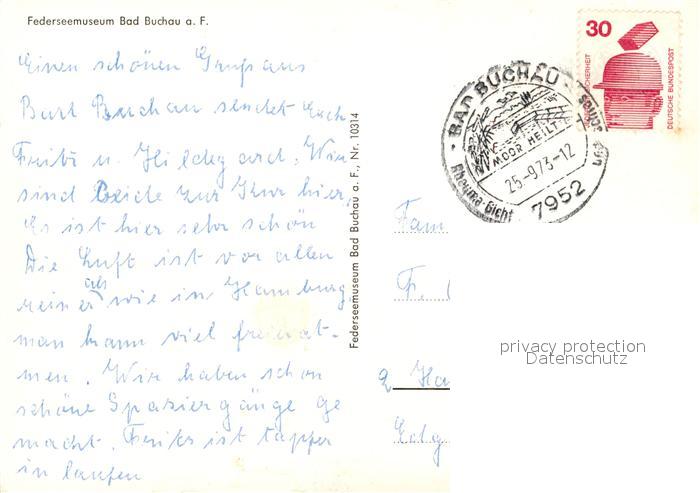 Federseemuseum Bad Buchau a. F.
Einen schönen Gruß aus
Bad Buchau sendet Euch
Fritz u. Hildegard. Wir
sind beide zur Kur hier,
Es ist hier sehr schön
Die Luft ist vor allen
reiner als wie in Hamburg
man kann viel freier at-
men. Wir haben schon
schöne Spaziergänge ge
macht. ist tapfer
in laufen
Federseemuseum Bad Buchau a. F., Nr. 10314
30
DEUTSCHE BUNDESPOST
BAD BUCHAU
MOOR HEILT
25.-9.73-12
Rheuma-Gicht
7952
Fam
F.
2 Ha
privacy protection
Datenschutz